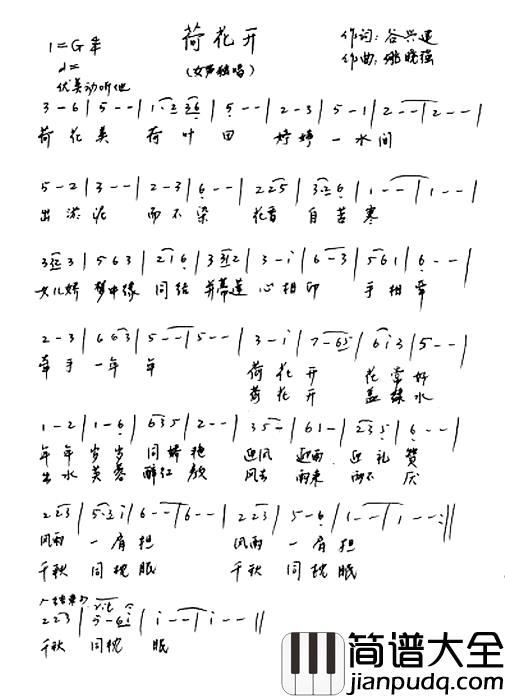 荷花开
1=G 3/4
作词：谷兴运
(女声独唱)
作曲：姚晓强
优美动听地
3-6|5--|1·2 36|5--|2-3|5-1|2--|2--|
荷花美 荷叶田 婷婷一水间
5-2|3--|2-3|6--|225|326|1--|1--|
出淤泥 而不染 花香自苦寒
3 2 3|5 6 3|2 1 6|3 2|3-i|6-3|5 6 1|6--|
女儿娇 梦中缘 同结并蒂莲 心相印 手相牵
2-3|6 6 3|5--|5--|3-i|7-65|6 i 3|5--|
牵手一年年 荷花开 花常好
荷花开 盖绿水
1-2|1-6|6 3 5|2--|3 5-|6 1-|2 3 5|6--|
年年岁岁同娇艳 迎风 迎雨 迎礼赞
出水芙蓉醉红颜 风去 雨来 而不厌
223|5·3i|6--|6--|223|5-6|1--|1--:||
风雨一肩担 风雨一肩担
千秋同枕眠 千秋同枕眠
rit
223|5-6i|i--|i--||
千秋同枕眠
简谱大全
jianpudq.com